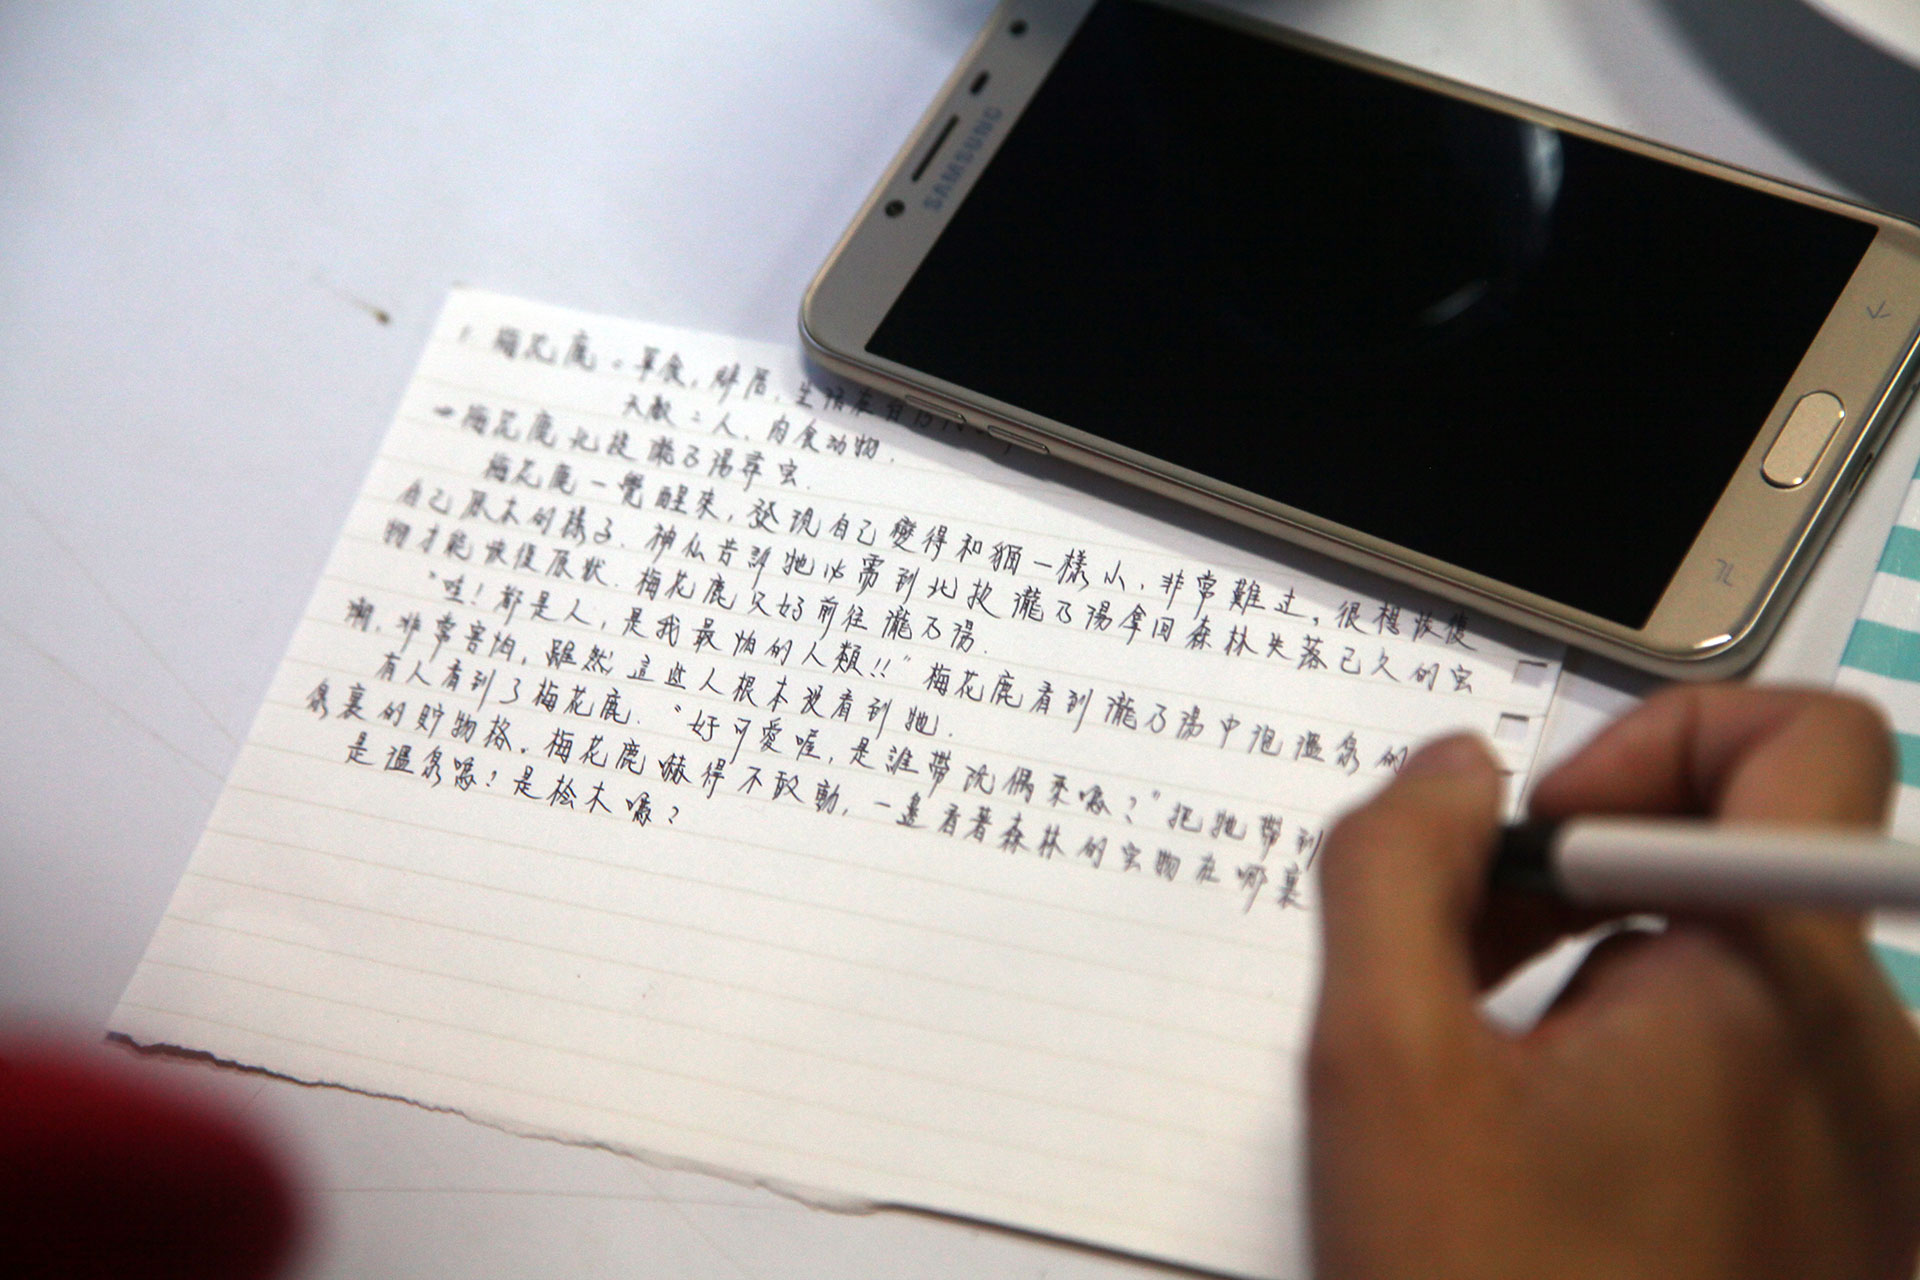 SAMSUNG
1 梅花鹿。草食,群居,生活在
天敵:人,肉食动物.
梅花鹿北投瀧乃湯尋宝.
梅花鹿一覺醒來,發現自己變得和貓一樣小,非常難过。很想恢復
自己原本的樣子.神仙告訴牠必需到北投瀧乃湯拿回森林失落已久的宝
物才能恢復原狀.梅花鹿只好前往瀧乃湯.
"哇!都是人,是我最怕的人類!!"梅花鹿看到瀧乃湯中泡溫泉的
潮,非常害怕,雖然這些人根本没看到牠.
有人看到了梅花鹿."好可愛喔,是誰帶玩偶來嗎?"把牠帶到
泉裏的貯物格。梅花鹿嚇得不敢動,一邊看著森林的宝物在哪裏
是溫泉嗎?是桧木嗎?